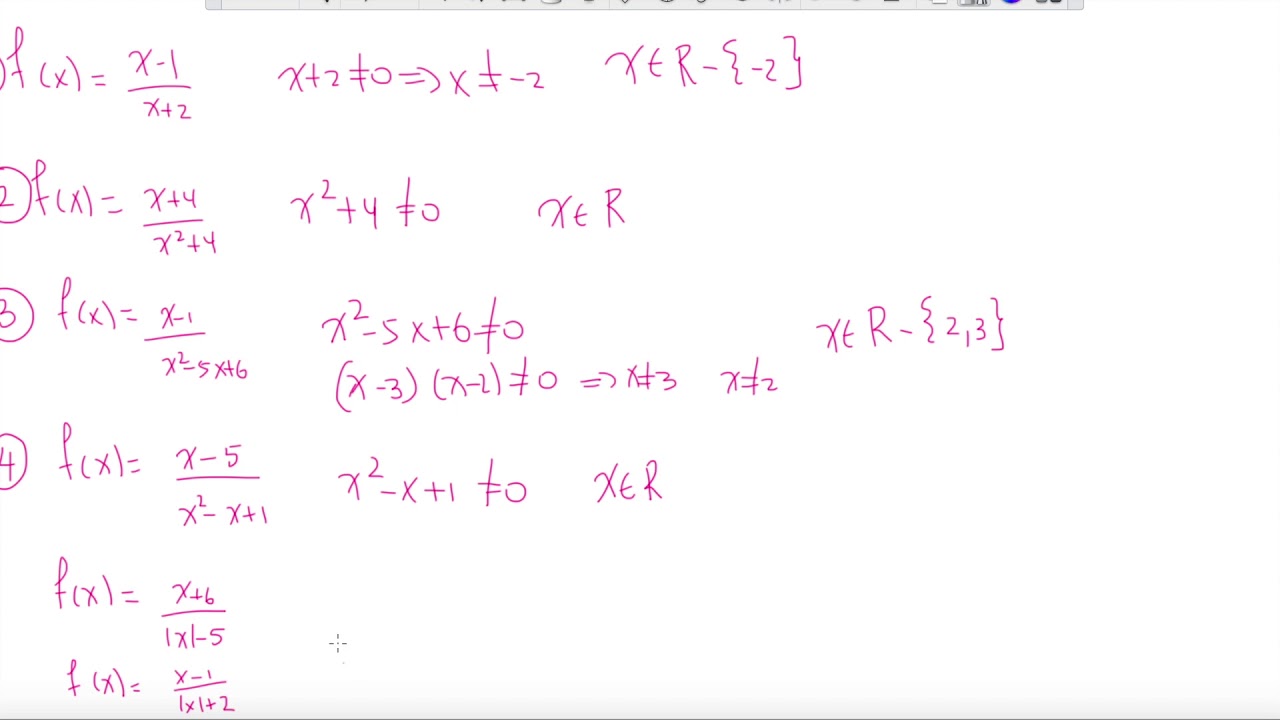 ) f(x) = x-1/x+2 x+2≠0 ⇒ x≠-2 x∈R-{-2}
2 f(x) = x+4/x²+4 x²+4≠0 x∈R
3 f(x) = x-1/x²-5x+6 x²-5x+6≠0 x∈R-{2,3}
(x-3)(x-2)≠0 ⇒ x≠3 x≠2
4 f(x) = x-5/x²-x+1 x²-x+1≠0 x∈R
f(x) = x+6/|x|-5
f(x) = x-1/|x|+2